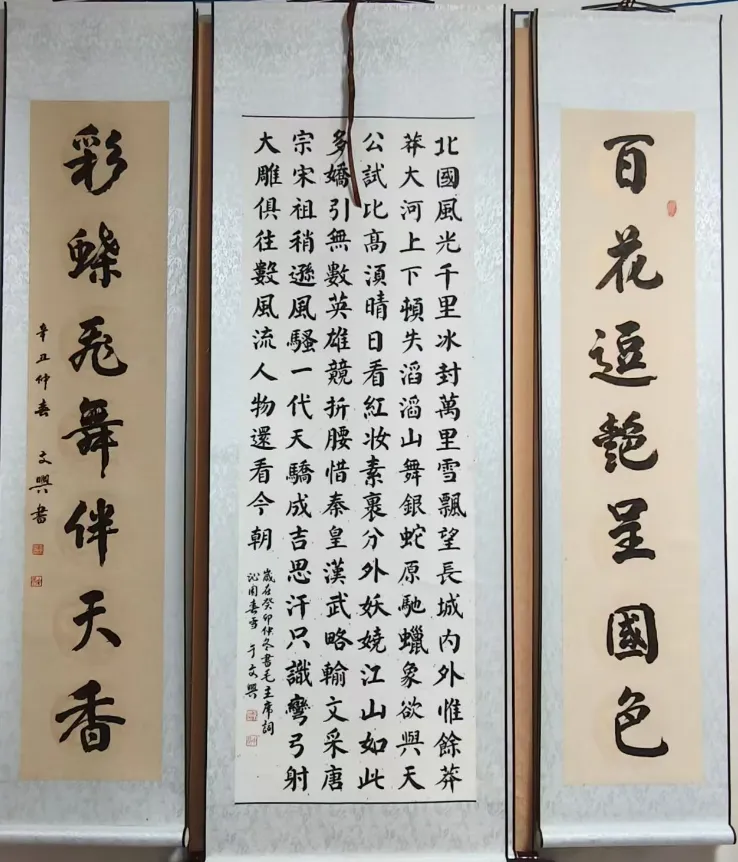 百花逗艷呈國色
北國風光千里冰封萬里雪飄望長城内外惟餘莽
莽大河上下頓失滔滔山舞銀蛇原馳蠟象欲與天
公試比髙須晴日看紅妝素裹分外妖嬈江山如此
多嬌引無數英雄競折腰惜秦皇漢武略輸文采唐
宗宋祖稍遜風騷一代天驕成吉思汗只識彎弓射
大雕俱往數風流人物還看今朝
歲在癸卯仲冬書毛主席詞
沁園春雪 于文興
彩蝶飛舞伴天香
辛丑仲春 文興書